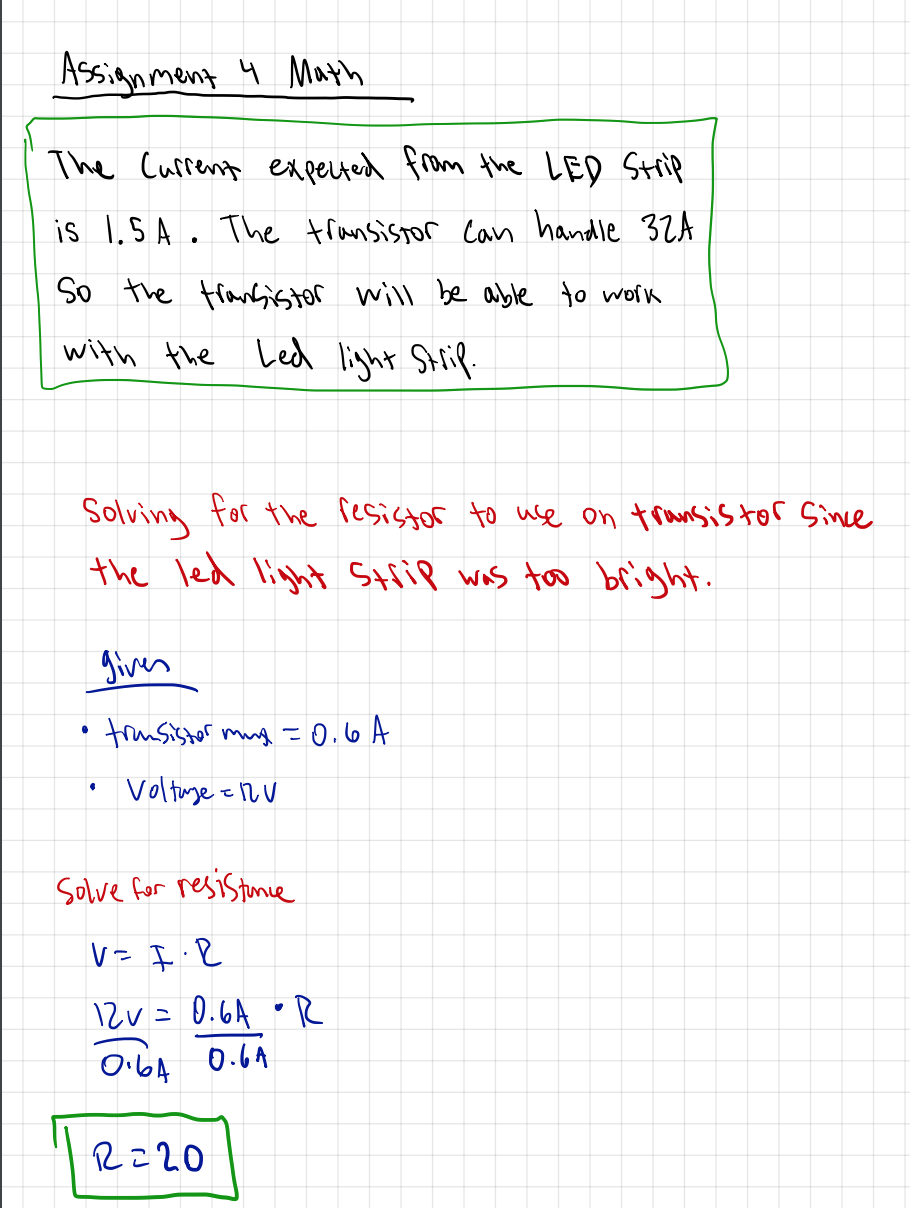 Assignment 4 Math
The Current expected from the LED Strip
is 1.5A. The transistor can handle 32A
So the transistor will be able to work
with the Led light Strip.
Solving for the resistor to use on transistor Since
the led light Strip was too bright.
given
• transistor = 0.6 A
• Voltage = 12V
Solve for resistance
V = I · R
12v = 0.6A • R
0.6A 0.6A
R = 20